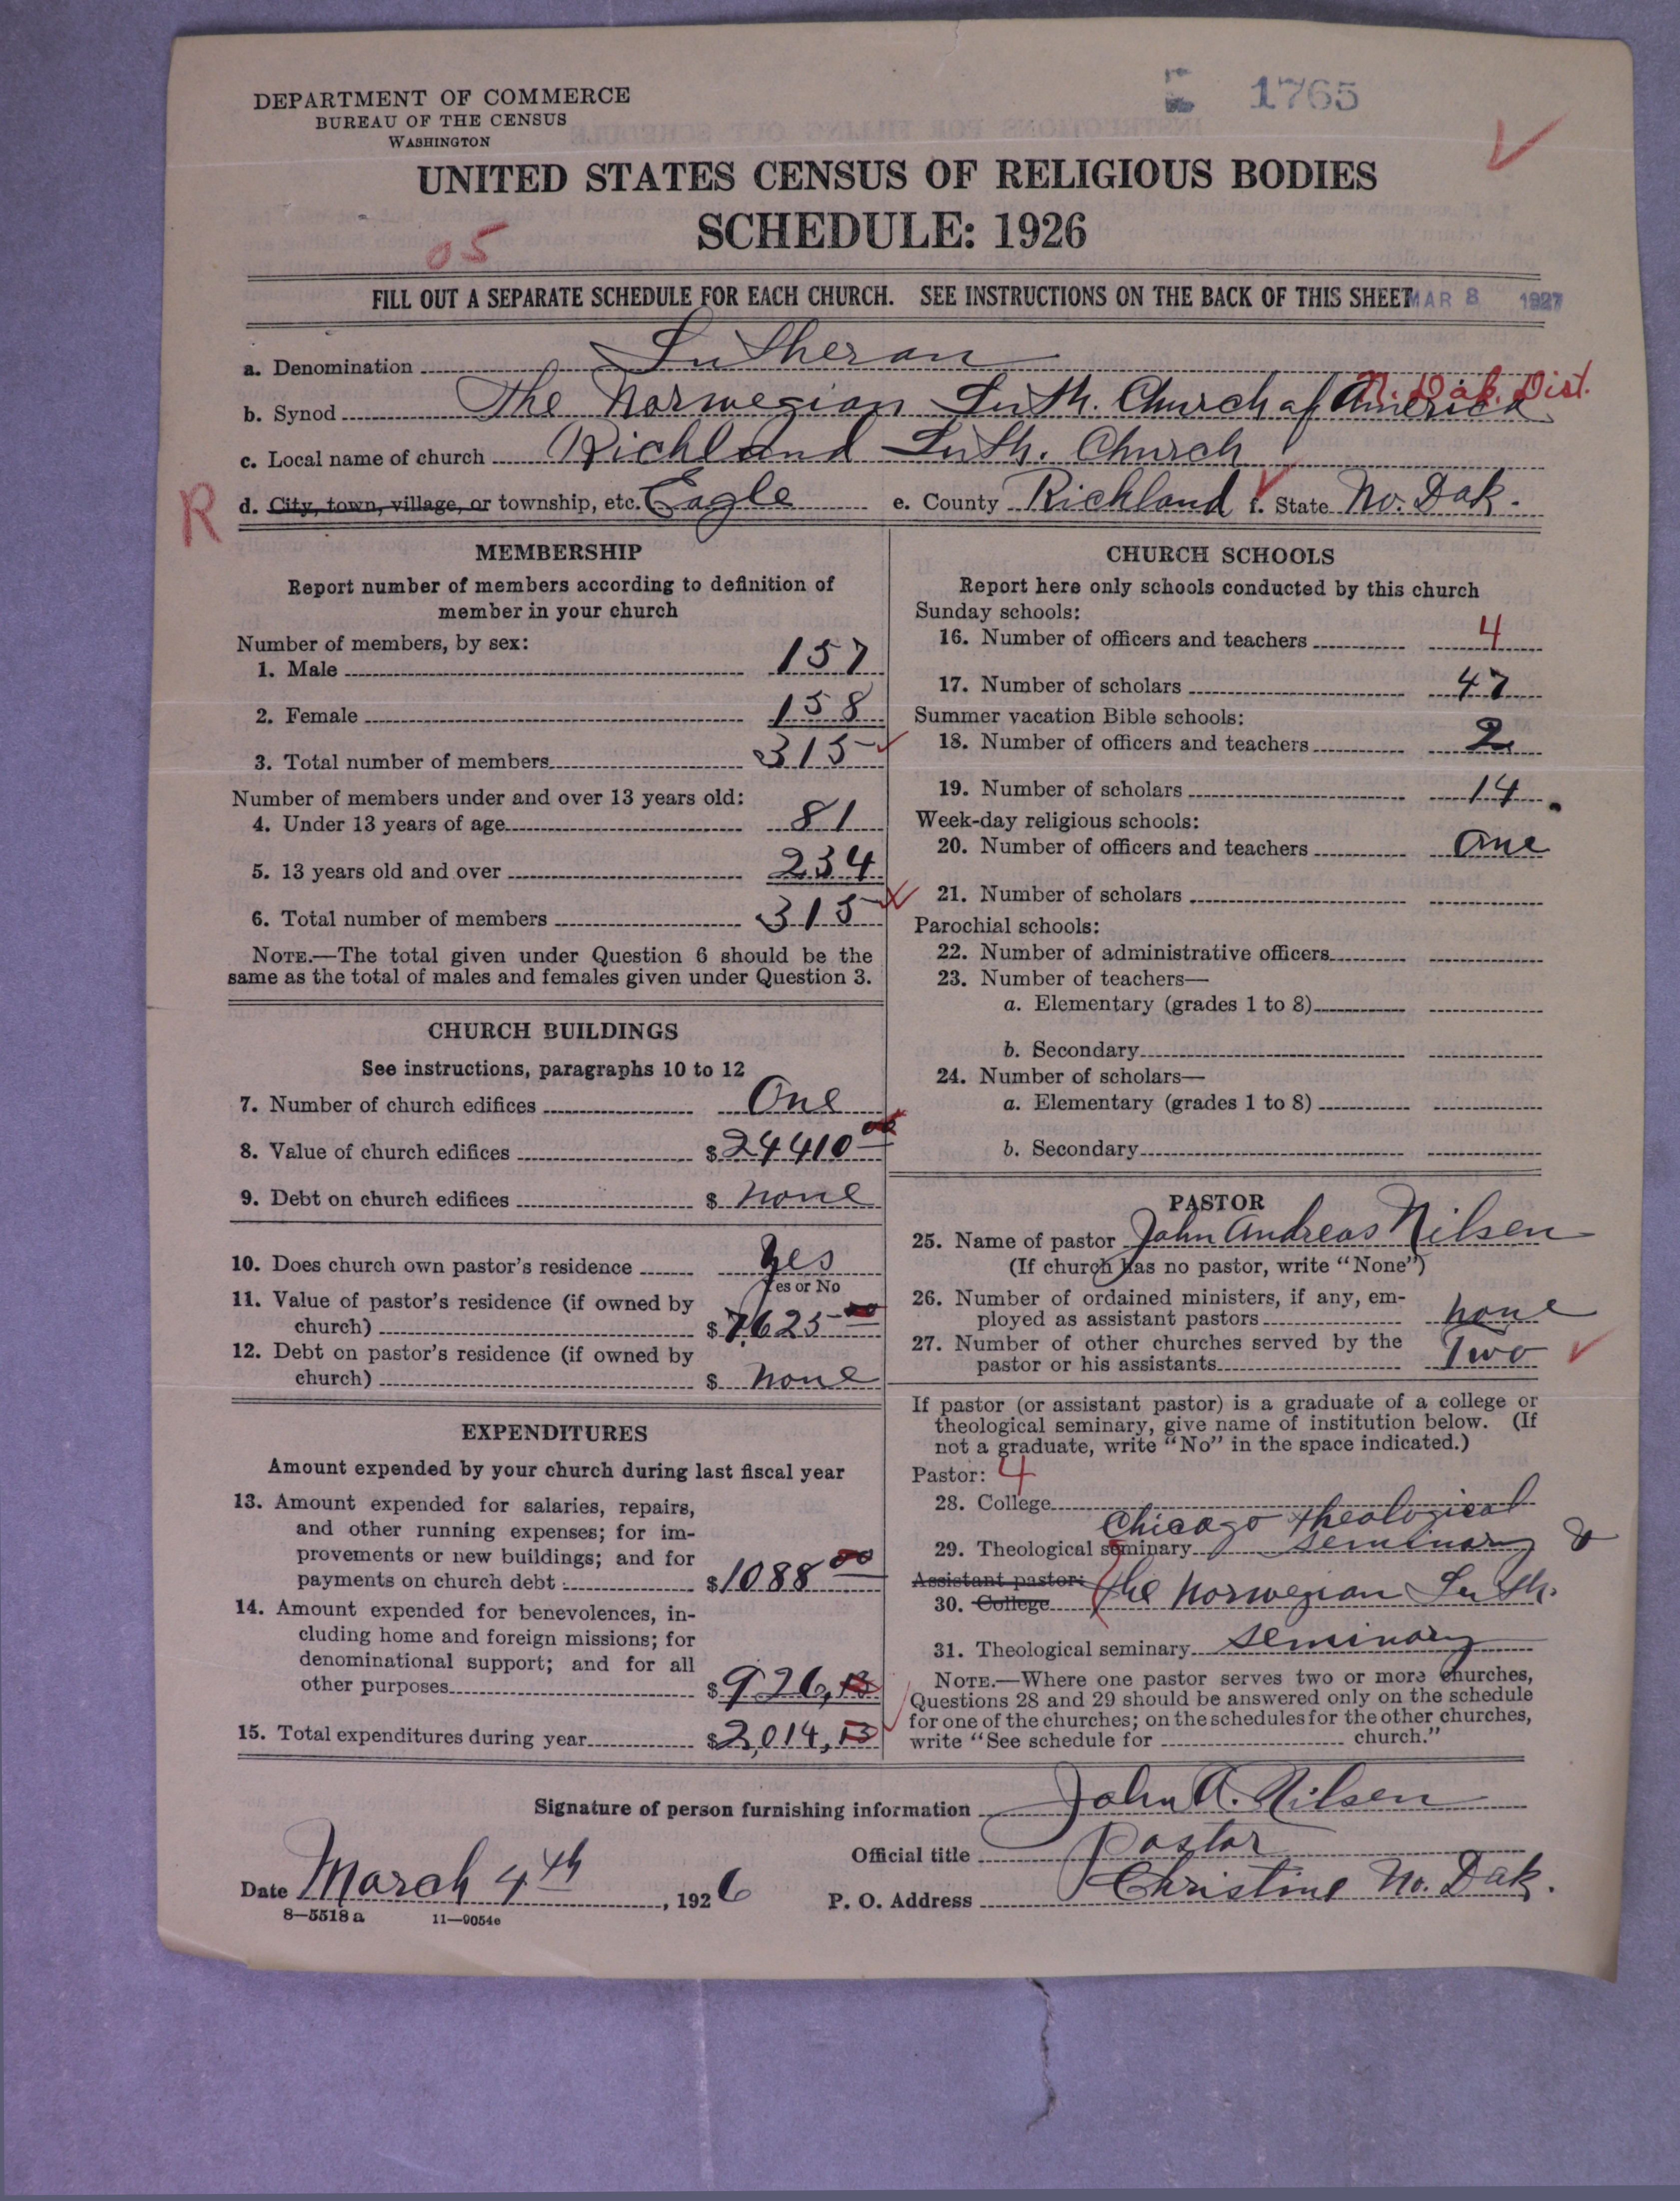 DEPARTMENT OF COMMERCE
BUREAU OF THE CENSUS
WASHINGTON
1765
UNITED STATES CENSUS OF RELIGIOUS BODIES
SCHEDULE: 1926
05
FILL OUT A SEPARATE SCHEDULE FOR EACH CHURCH. SEE INSTRUCTIONS ON THE BACK OF THIS SHEET
MAR 8 1927
a. Denomination Lutheran
N. Dak. Dist.
b. Synod The Norwegian Luth. Church of America
c. Local name of church Richland Luth. Church
R d. City, town, village, or township, etc. Eagle e. County Richland f. State No. Dak.
MEMBERSHIP
Report number of members according to definition of
member in your church
Number of members, by sex:
1. Male 157
2. Female 158
3. Total number of members 315
Number of members under and over 13 years old:
4. Under 13 years of age 81
5. 13 years old and over 234
6. Total number of members 315
NOTE.—The total given under Question 6 should be the
same as the total of males and females given under Question 3.
CHURCH BUILDINGS
See instructions, paragraphs 10 to 12
7. Number of church edifices One
8. Value of church edifices $24410 00
9. Debt on church edifices $ none
10. Does church own pastor's residence Yes
Yes or No
11. Value of pastor's residence (if owned by
church) $7625 00
12. Debt on pastor's residence (if owned by
church) $ none
EXPENDITURES
Amount expended by your church during last fiscal year
13. Amount expended for salaries, repairs,
and other running expenses; for im-
provements or new buildings; and for
payments on church debt $1088 00
14. Amount expended for benevolences, in-
cluding home and foreign missions; for
denominational support; and for all
other purposes $926,13
15. Total expenditures during year $2,014,13
CHURCH SCHOOLS
Report here only schools conducted by this church
Sunday schools:
16. Number of officers and teachers 4
17. Number of scholars 47
Summer vacation Bible schools:
18. Number of officers and teachers 2
19. Number of scholars 14
Week-day religious schools:
20. Number of officers and teachers One
21. Number of scholars
Parochial schools:
22. Number of administrative officers
23. Number of teachers—
a. Elementary (grades 1 to 8)
b. Secondary
24. Number of scholars—
a. Elementary (grades 1 to 8)
b. Secondary
PASTOR
25. Name of pastor John Andreas Nilsen
(If church has no pastor, write "None")
26. Number of ordained ministers, if any, em-
ployed as assistant pastors none
27. Number of other churches served by the
pastor or his assistants Two
If pastor (or assistant pastor) is a graduate of a college or
theological seminary, give name of institution below. (If
not a graduate, write "No" in the space indicated.)
Pastor: 4
28. College
Chicago Theological
29. Theological seminary seminary &
Assistant pastor:
30. College The Norwegian Luth.
31. Theological seminary seminary
NOTE.—Where one pastor serves two or more churches,
Questions 28 and 29 should be answered only on the schedule
for one of the churches; on the schedules for the other churches,
write "See schedule for church."
Signature of person furnishing information John A. Nilsen
Official title Pastor
Date March 4th, 1926 P. O. Address Christine No. Dak.
8—5518 a 11—9054e